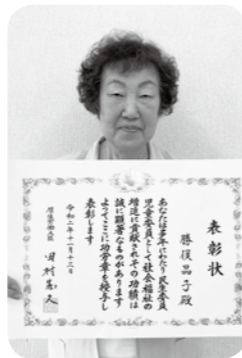 表彰状
勝俣晶子殿
あなたは多年にわたり民生委員
児童委員として社会福祉の
増進に貢献されその功績は
誠に顕著なものがあります
よってここに功労章を授与し
表彰します
令和二年十一月十三日
厚生労働大臣 田村憲久